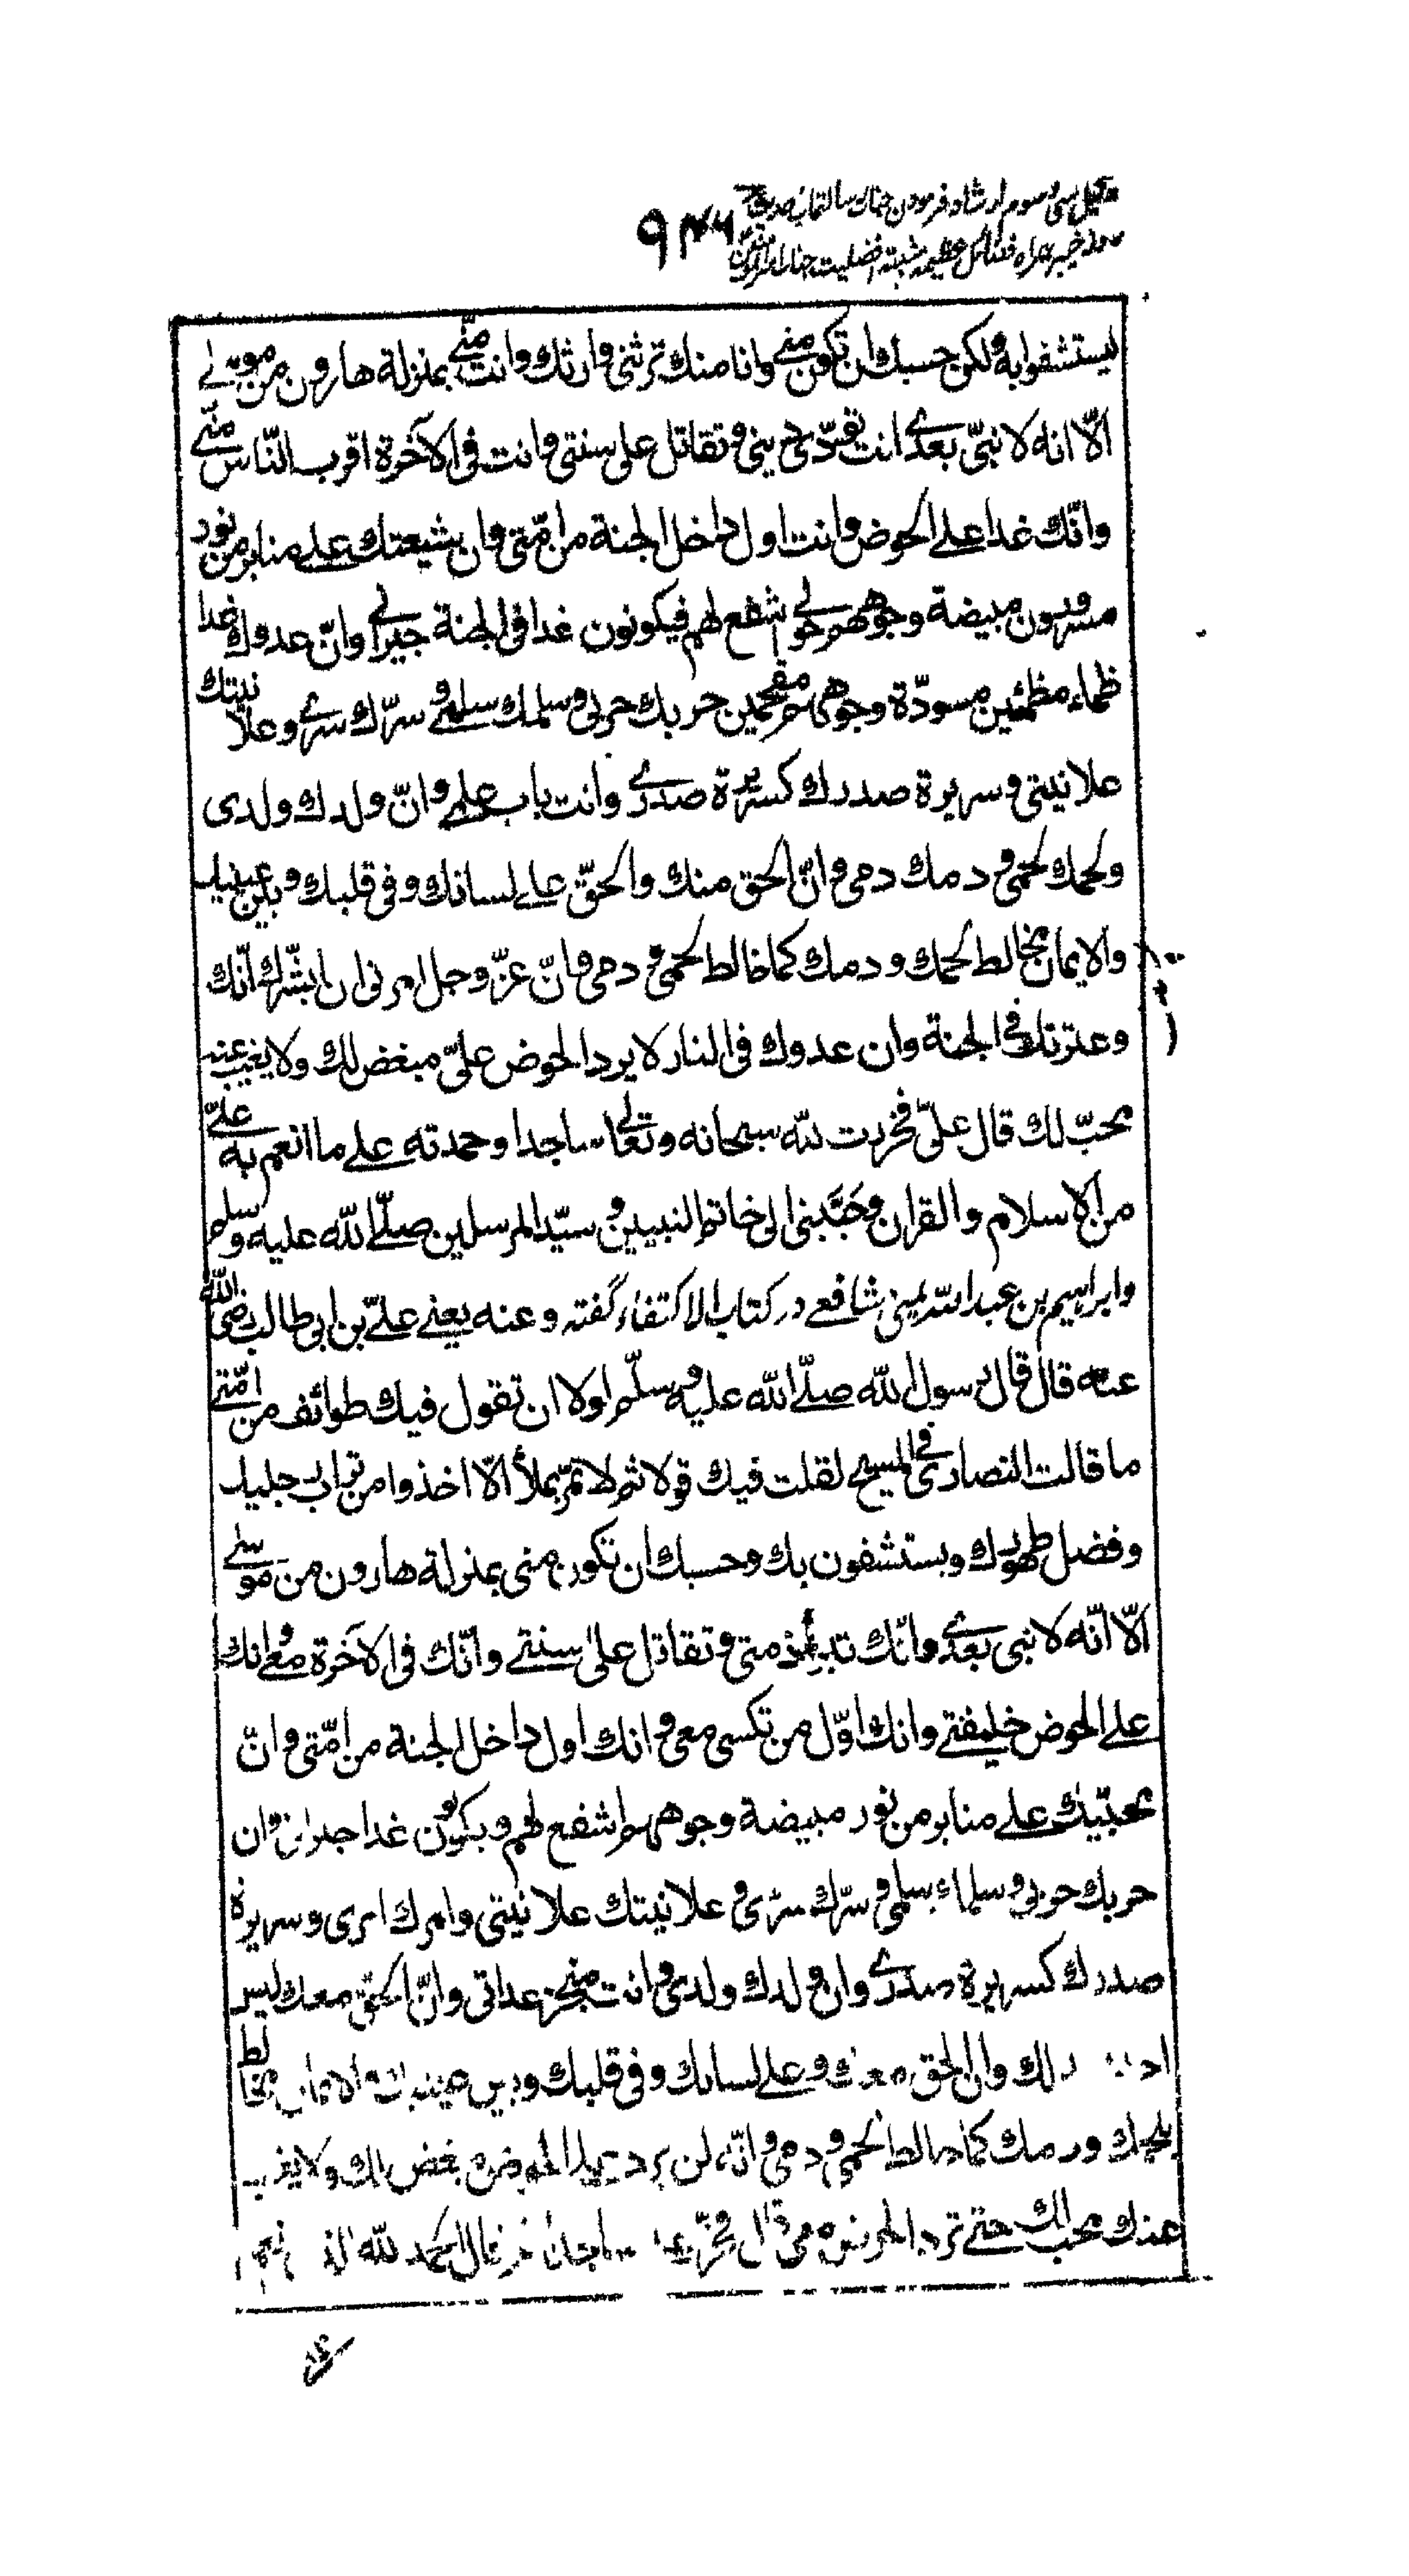 دلیل سی و سوم ارشاد فرمودن جناب رسالتمآب
خیبر فضائل عظیمه مثبته افضلیت جناب
۹۴۶
لیستشفوا به ولکن حسبک ان تکون منی وانا منک ترثنی وارثک وانت منّی بمنزلة هارون من موسی
الّا انه لا نبیّ بعدی انت تودّی دینی وتقاتل علی سنتی وانت فی الآخرة اقرب النّاس منّی
وانّک غدا علی الحوض وانت اول داخل الجنة من امّتی وان شیعتک علی منابر من نور
مسرورون مبیضة وجوههم حولی اشفع لهم فیکونون غدا فی الجنة جیرانی وانّ عدوک غدا
ظماء مظمئین مسودّة وجوههم مقمحین حربک حربی وسلمک سلمی وسرّک سری وعلانیتک
علانیتی وسریرة صدرک کسریرة صدری وانت باب علمی وانّ ولدک ولدی
ولحمک لحمی ودمک دمی وانّ الحق منک والحقّ علی لسانک وفی قلبک وبین عینیک
والایمان مخالط لحمک ودمک کما خالط لحمی ودمی وانّ عزّ وجل امرنی ان ابشّرک انّک
وعترتک فی الجنة وان عدوک فی النار لا یرد الحوض علیّ مبغض لک ولا یغیب عنه
محبّ لک قال علیّ فخررت لله سبحانه وتعالی ساجدا وحمدته علی ما انعم به علیّ
من الاسلام والقران وحَبَّبنی الی خاتم النبیین وسیّد المرسلین صلّی الله علیه وسلم
وابراهیم بن عبد الله یمنی شافعی در کتاب الاکتفاء گفته وعنه یعنی علیّ بن ابی طالب رضی الله
عنه قال قال رسول لله صلّی الله علیه وسلّم لولا ان تقول فیک طوائف من امّتی
ما قالت النصاری فی المسیح لقلت فیک قولا ثم لا تمرّ بملأ الّا اخذوا من تراب
وفضل طهورک ویستشفون بک وحسبک ان تکون منی بمنزلة هارون من موسی
الّا انّه لا نبی بعدی وانّک تبرئ ذمتی وتقاتل علی سنتی وانّک فی الآخرة معی وانک
علی الحوض خلیفتی وانک اوّل من تکسی معی وانک اول داخل الجنة من امّتی وانّ
محبّیک علی منابر من نور مبیضة وجوههم اشفع لهم ویکونون غدا جیرانی وان
حربک حربی سلمی وسرّک سرّی وعلانیتک علانیتی وامرک امری وسریرة
صدرک کسریرة صدری وان ولدک ولدی وانت منجز عداتی وانّ الحقّ معک لیس
وان الحق معک وعلی لسانک وفی قلبک وبین عینیک والایمان مخالط
ودمک کما خالط لحمی ودمی وانّه لن یرد علی الحوض مبغض لک ولا یغیب
عنک محب لک حتی ترد الحوض معی قال فخرّ علی ساجدا ثم قال الحمد لله